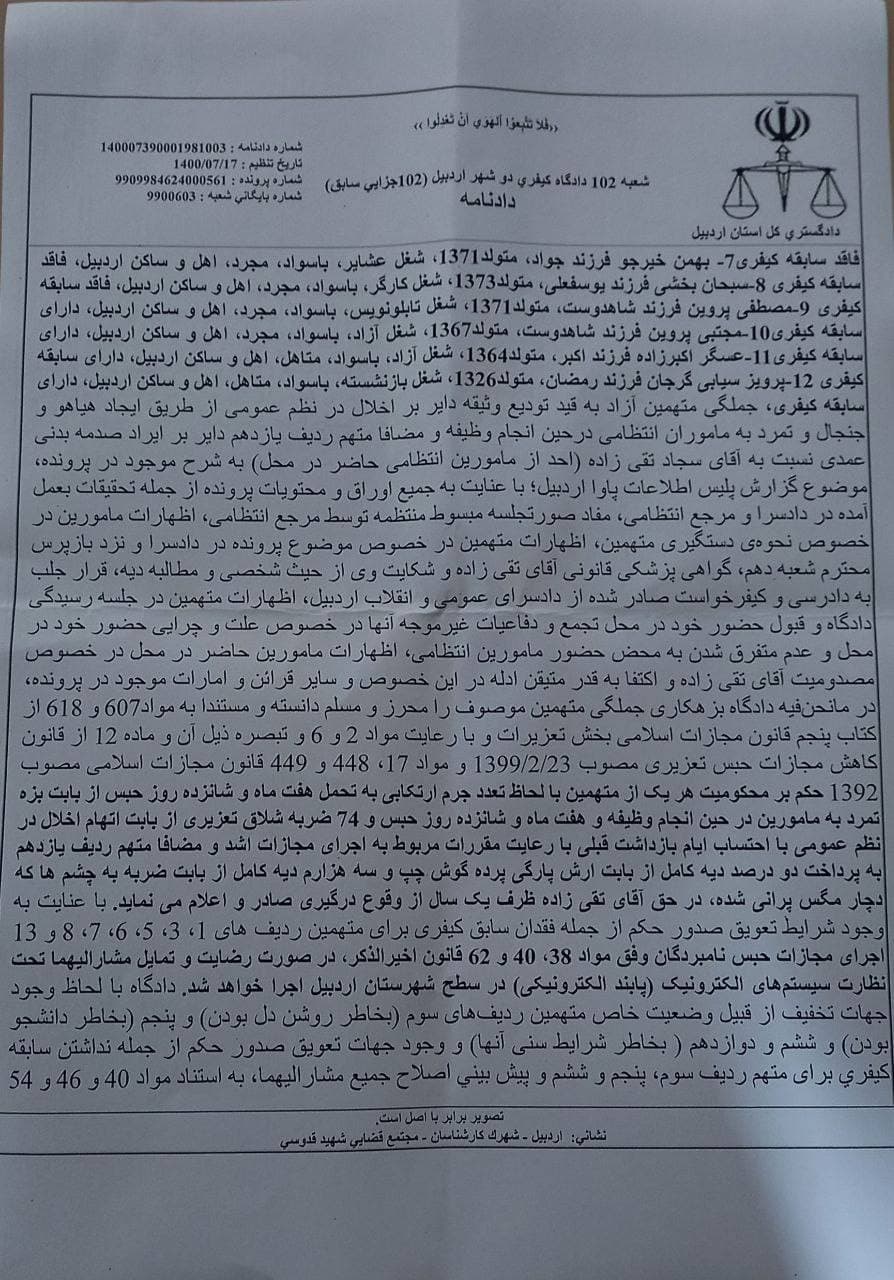 «فَلا تَتَّبِعوُا الهَوي اَنْ تَعْدِلُوا»
شماره دادنامه : 140007390001981003
تاریخ تنظیم : 1400/07/17
شماره پرونده : 9909984624000561
شماره بایگانی شعبه : 9900603
شعبه 102 دادگاه کیفری دو شهر اردبیل (102جزایی سابق)
دادنامه
دادگستري کل استان اردبیل
فاقد سابقه کیفری7- بهمن خیرجو فرزند جواد، متولد1371، شغل عشایر، باسواد، مجرد، اهل و ساکن اردبیل، فاقد
سابقه کیفری 8-سبحان بخشی فرزند یوسفعلی، متولد1373، شغل کارگر، باسواد، مجرد، اهل و ساکن اردبیل، فاقد سابقه
کیفری 9-مصطفی پروین فرزند شاهدوست، متولد1371، شغل تابلونویس، باسواد، مجرد، اهل و ساکن اردبیل، دارای
سابقه کیفری10-مجتبی پروین فرزند شاهدوست، متولد1367، شغل آزاد، باسواد، مجرد، اهل و ساکن اردبیل، دارای
سابقه کیفری11-عسگر اکبرزاده فرزند اکبر، متولد1364، شغل آزاد، باسواد، متاهل، اهل و ساکن اردبیل، دارای سابقه
کیفری 12-پرویز سیابی گرجان فرزند رمضان، متولد1326، شغل بازنشسته، باسواد، متاهل، اهل و ساکن اردبیل، دارای
سابقه کیفری، جملگی متهمین آزاد به قید تودیع وثیقه دایر بر اخلال در نظم عمومی از طریق ایجاد هیاهو و
جنجال و تمرد به ماموران انتظامی درحین انجام وظیفه و مضافا متهم ردیف یازدهم دایر بر ایراد صدمه بدنی
عمدی نسبت به آقای سجاد تقی زاده (احد از مامورین انتظامی حاضر در محل) به شرح موجود در پرونده،
موضوع گزارش پلیس اطلاعات پاوا اردبیل؛ با عنایت به جمیع اوراق و محتویات پرونده از جمله تحقیقات بعمل
آمده در دادسرا و مرجع انتظامی، مفاد صورتجلسه مبسوط منتظمه توسط مرجع انتظامی، اظهارات مامورین در
خصوص نحوه‌ی دستگیری متهمین، اظهارات متهمین در خصوص موضوع پرونده در دادسرا و نزد بازپرس
محترم شعبه دهم، گواهی پزشکی قانونی آقای تقی زاده و شکایت وی از حیث شخصی و مطالبه دیه، قرار جلب
به دادرسی و کیفرخواست صادر شده از دادسرای عمومی و انقلاب اردبیل، اظهارات متهمین در جلسه رسیدگی
دادگاه و قبول حضور خود در محل تجمع و دفاعیات غیرموجه آنها در خصوص علت و چرایی حضور خود در
محل و عدم متفرق شدن به محض حضور مامورین انتظامی، اظهارات مامورین حاضر در محل در خصوص
مصدومیت آقای تقی زاده و اکتفا به قدر متیقن ادله در این خصوص و سایر قرائن و امارات موجود در پرونده،
در مانحن‌فیه دادگاه بزهکاری جملگی متهمین موصوف را محرز و مسلم دانسته و مستندا به مواد607 و 618 از
کتاب پنجم قانون مجازات اسلامی بخش تعزیرات و با رعایت مواد 2 و 6 و تبصره ذیل آن و ماده 12 از قانون
کاهش مجازات حبس تعزیری مصوب 1399/2/23 و مواد 17، 448 و 449 قانون مجازات اسلامی مصوب
1392 حکم بر محکومیت هر یک از متهمین با لحاظ تعدد جرم ارتکابی به تحمل هفت ماه و شانزده روز حبس از بابت بزه
تمرد به مامورین در حین انجام وظیفه و هفت ماه و شانزده روز حبس و 74 ضربه شلاق تعزیری از بابت اتهام اخلال در
نظم عمومی با احتساب ایام بازداشت قبلی با رعایت مقررات مربوط به اجرای مجازات اشد و مضافا متهم ردیف یازدهم
به پرداخت دو درصد دیه کامل از بابت ارش پارگی پرده گوش چپ و سه هزارم دیه کامل از بابت ضربه به چشم ها که
دچار مگس پرانی شده، در حق آقای تقی زاده ظرف یک سال از وقوع درگیری صادر و اعلام می نماید. با عنایت به
وجود شرایط تعویق صدور حکم از جمله فقدان سابق کیفری برای متهمین ردیف های 1، 3، 5، 6، 7، 8 و 13
اجرای مجازات حبس نامبردگان وفق مواد 38، 40 و 62 قانون اخیرالذکر، در صورت رضایت و تمایل مشارالیهما تحت
نظارت سیستم‌های الکترونیک (پابند الکترونیکی) در سطح شهرستان اردبیل اجرا خواهد شد. دادگاه با لحاظ وجود
جهات تخفیف از قبیل وضعیت خاص متهمین ردیف‌های سوم (بخاطر روشن دل بودن) و پنجم (بخاطر دانشجو
بودن) و ششم و دوازدهم ( بخاطر شرایط سنی آنها) و وجود جهات تعویق صدور حکم از جمله نداشتن سابقه
کیفري برای متهم ردیف سوم، پنجم و ششم و پیش بیني اصلاح جمیع مشارالیهما، به استناد مواد 40 و 46 و 54
تصویر برابر با اصل است.
نشاني: اردبیل - شهرك کارشناسان - مجتمع قضایي شهید قدوسي